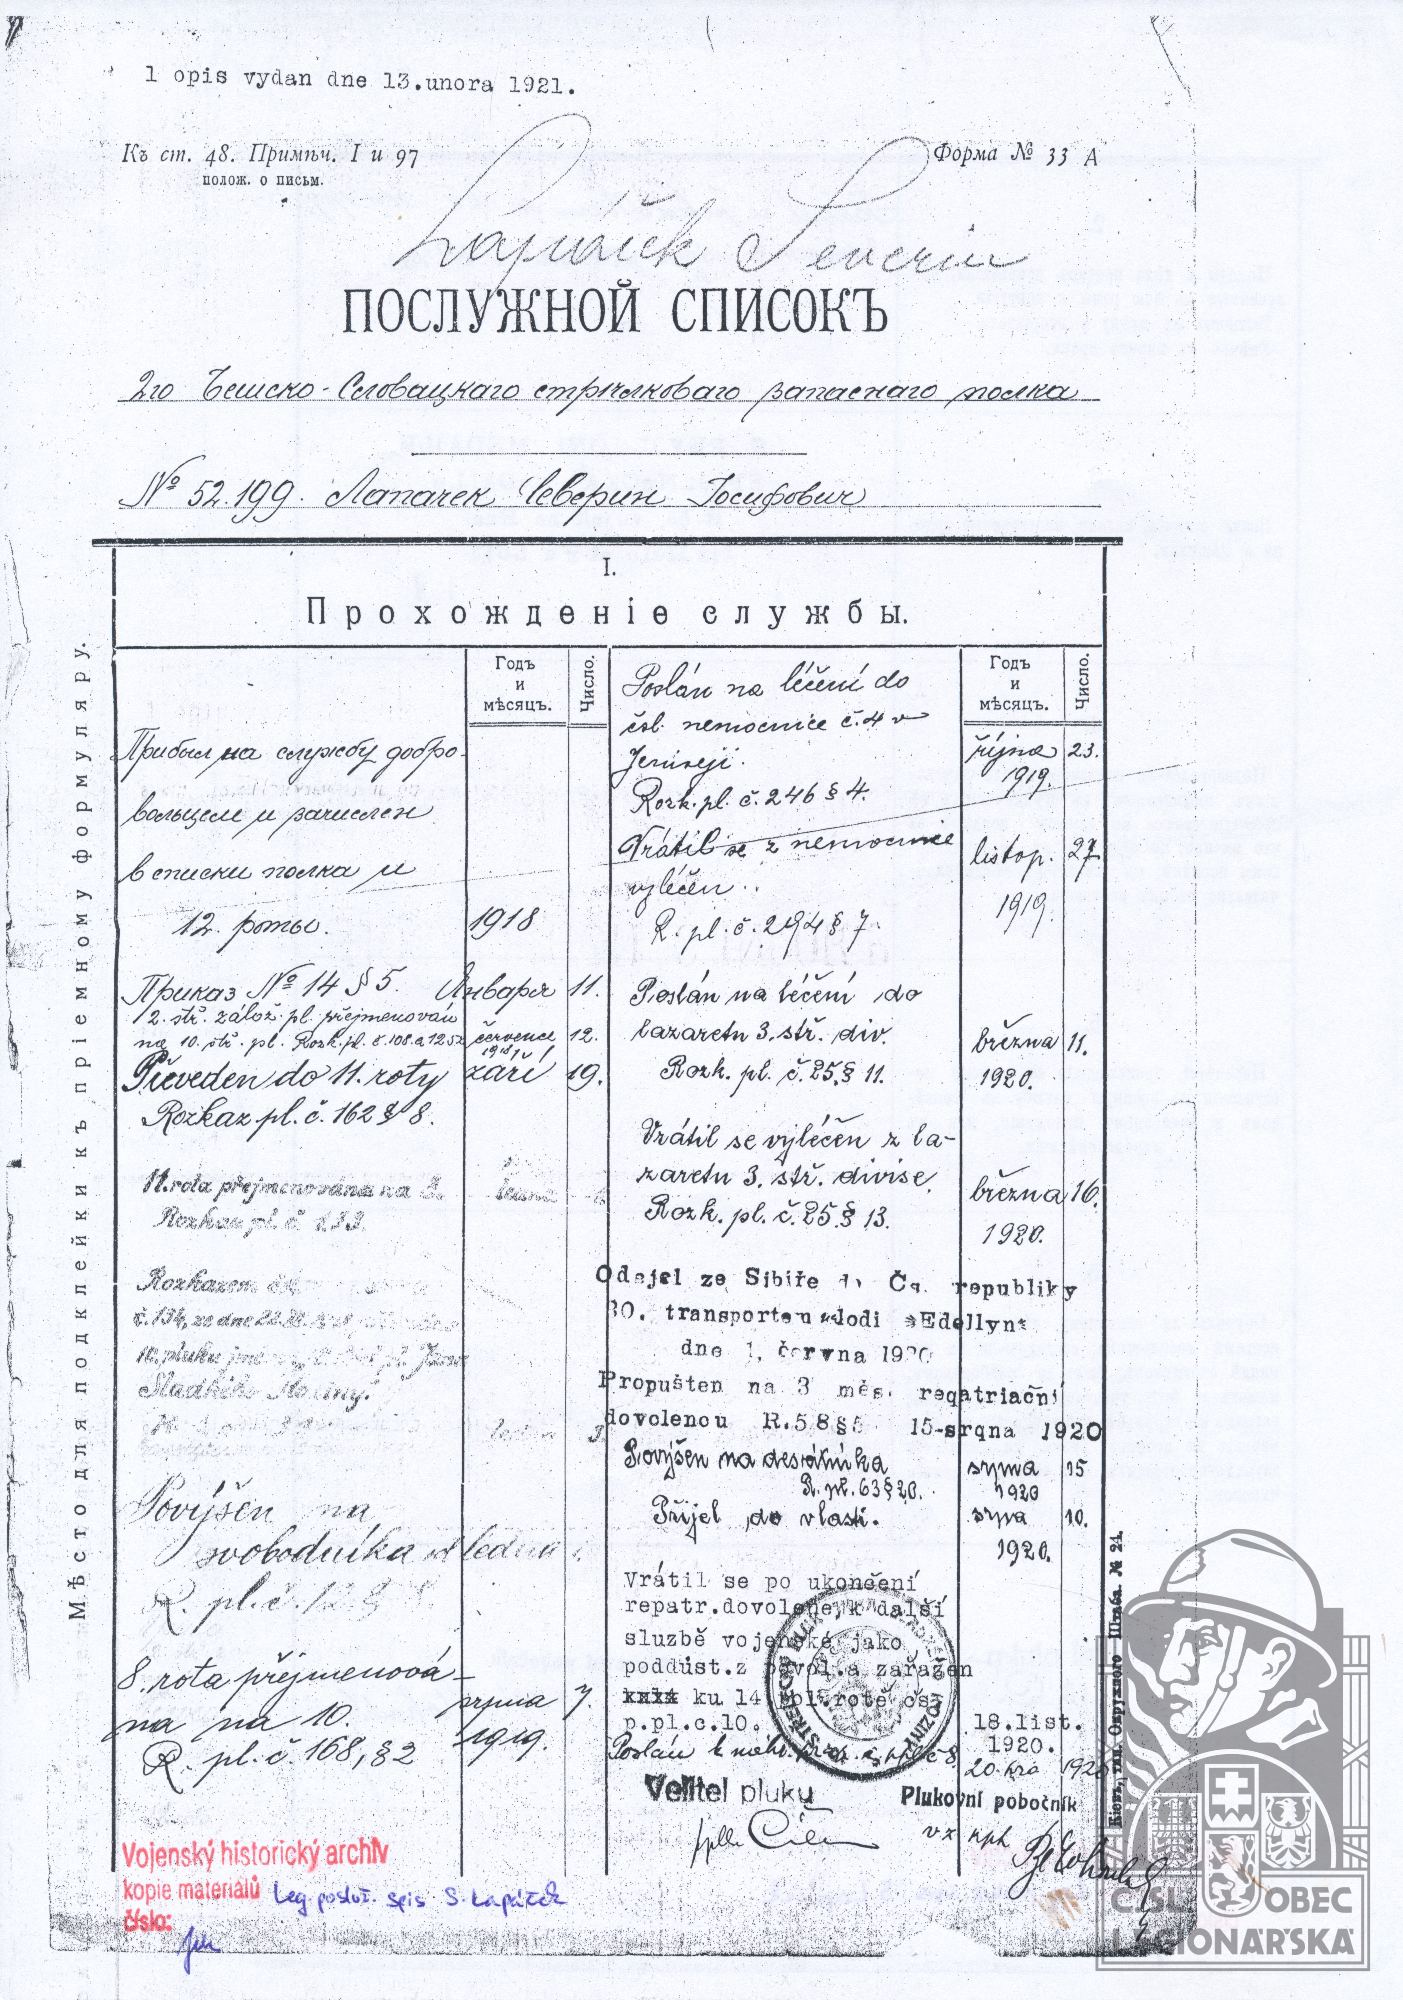 1 opis vydan dne 13.unora 1921.
Къ ст. 48. Примѣч. I и 97
полож. о письм.
Форма № 33 А
Lapáček Severin
ПОСЛУЖНОЙ СПИСОКЪ
2го Чешско-Словацкаго стрѣлковаго запаснаго полка
№ 52.199. Лапачек Северин Іосифович
I.
Прохожденіе службы.
Годъ и мѣсяцъ.
Число.
Годъ и мѣсяцъ.
Число.
Мѣсто для подклейки къ пріемному формуляру.
Прибыл на службу добро-
вольцем и зачислен
в списки полка и
12. роты. 1918
Приказ № 14 § 5. Января 11.
2. stř. zálož. pl. přejmenován
na 10. stř. pl. Rozk. pl. č. 108. a 125 července 12.
1918
Převeden do 11. roty září 19.
Rozkaz pl. č. 162 § 8.
11. rota přejmenována na
Rozkaz pl. č.
Rozkazem
č. 134, ze dne 22.
10. pluku pl. Jana
Sladkého Koziny.
Povýšen na
svobodníka od ledna 1.
R. pl. č. 12 §
8. rota přejmenová-
na na 10. srpna 7.
R. pl. č. 168, § 2 1919.
Poslán na léčení do
čsl. nemocnice č. 4 v
Jeniseji. října 23.
1919.
Rozk. pl. č. 246 § 4.
Vrátil se z nemocnice
vyléčen. listop. 27
1919.
R. pl. č. 294 § 7.
Poslán na léčení do
lazaretu 3. stř. div. března 11.
Rozk. pl. č. 25. § 11. 1920.
Vrátil se vyléčen z la-
zaretu 3. stř. divise. března 16.
Rozk. pl. č. 25. § 13. 1920.
Odejel ze Sibiře do Čs. republiky
30. transportem lodi »Edellyn«
dne 1. června 1920
Propušten na 3 měs. reqatriační
dovolenou R.58§5 15-srqna 1920
Povýšen na desátníka srpna 15
R. pl. 63 § 20. 1920
Přijel do vlasti. srpna 10.
1920.
Vrátil se po ukončení
repatr.dovolene,k další
sluzbě vojenské jako
poddůst.z povol.a zařazen
xxxx ku 14 pol.rotě čs.
p.pl.c.10. 18.list.
1920.
Poslán k
Velitel pluku
Plukovní pobočník
Кіевъ, тип. Окружного Штаба. № 21.
Vojenský historický archiv
kopie materiálů
číslo:
Leg. posluž. spis S. Lapáček
ČSL. OBEC
LEGIONÁŘSKÁ